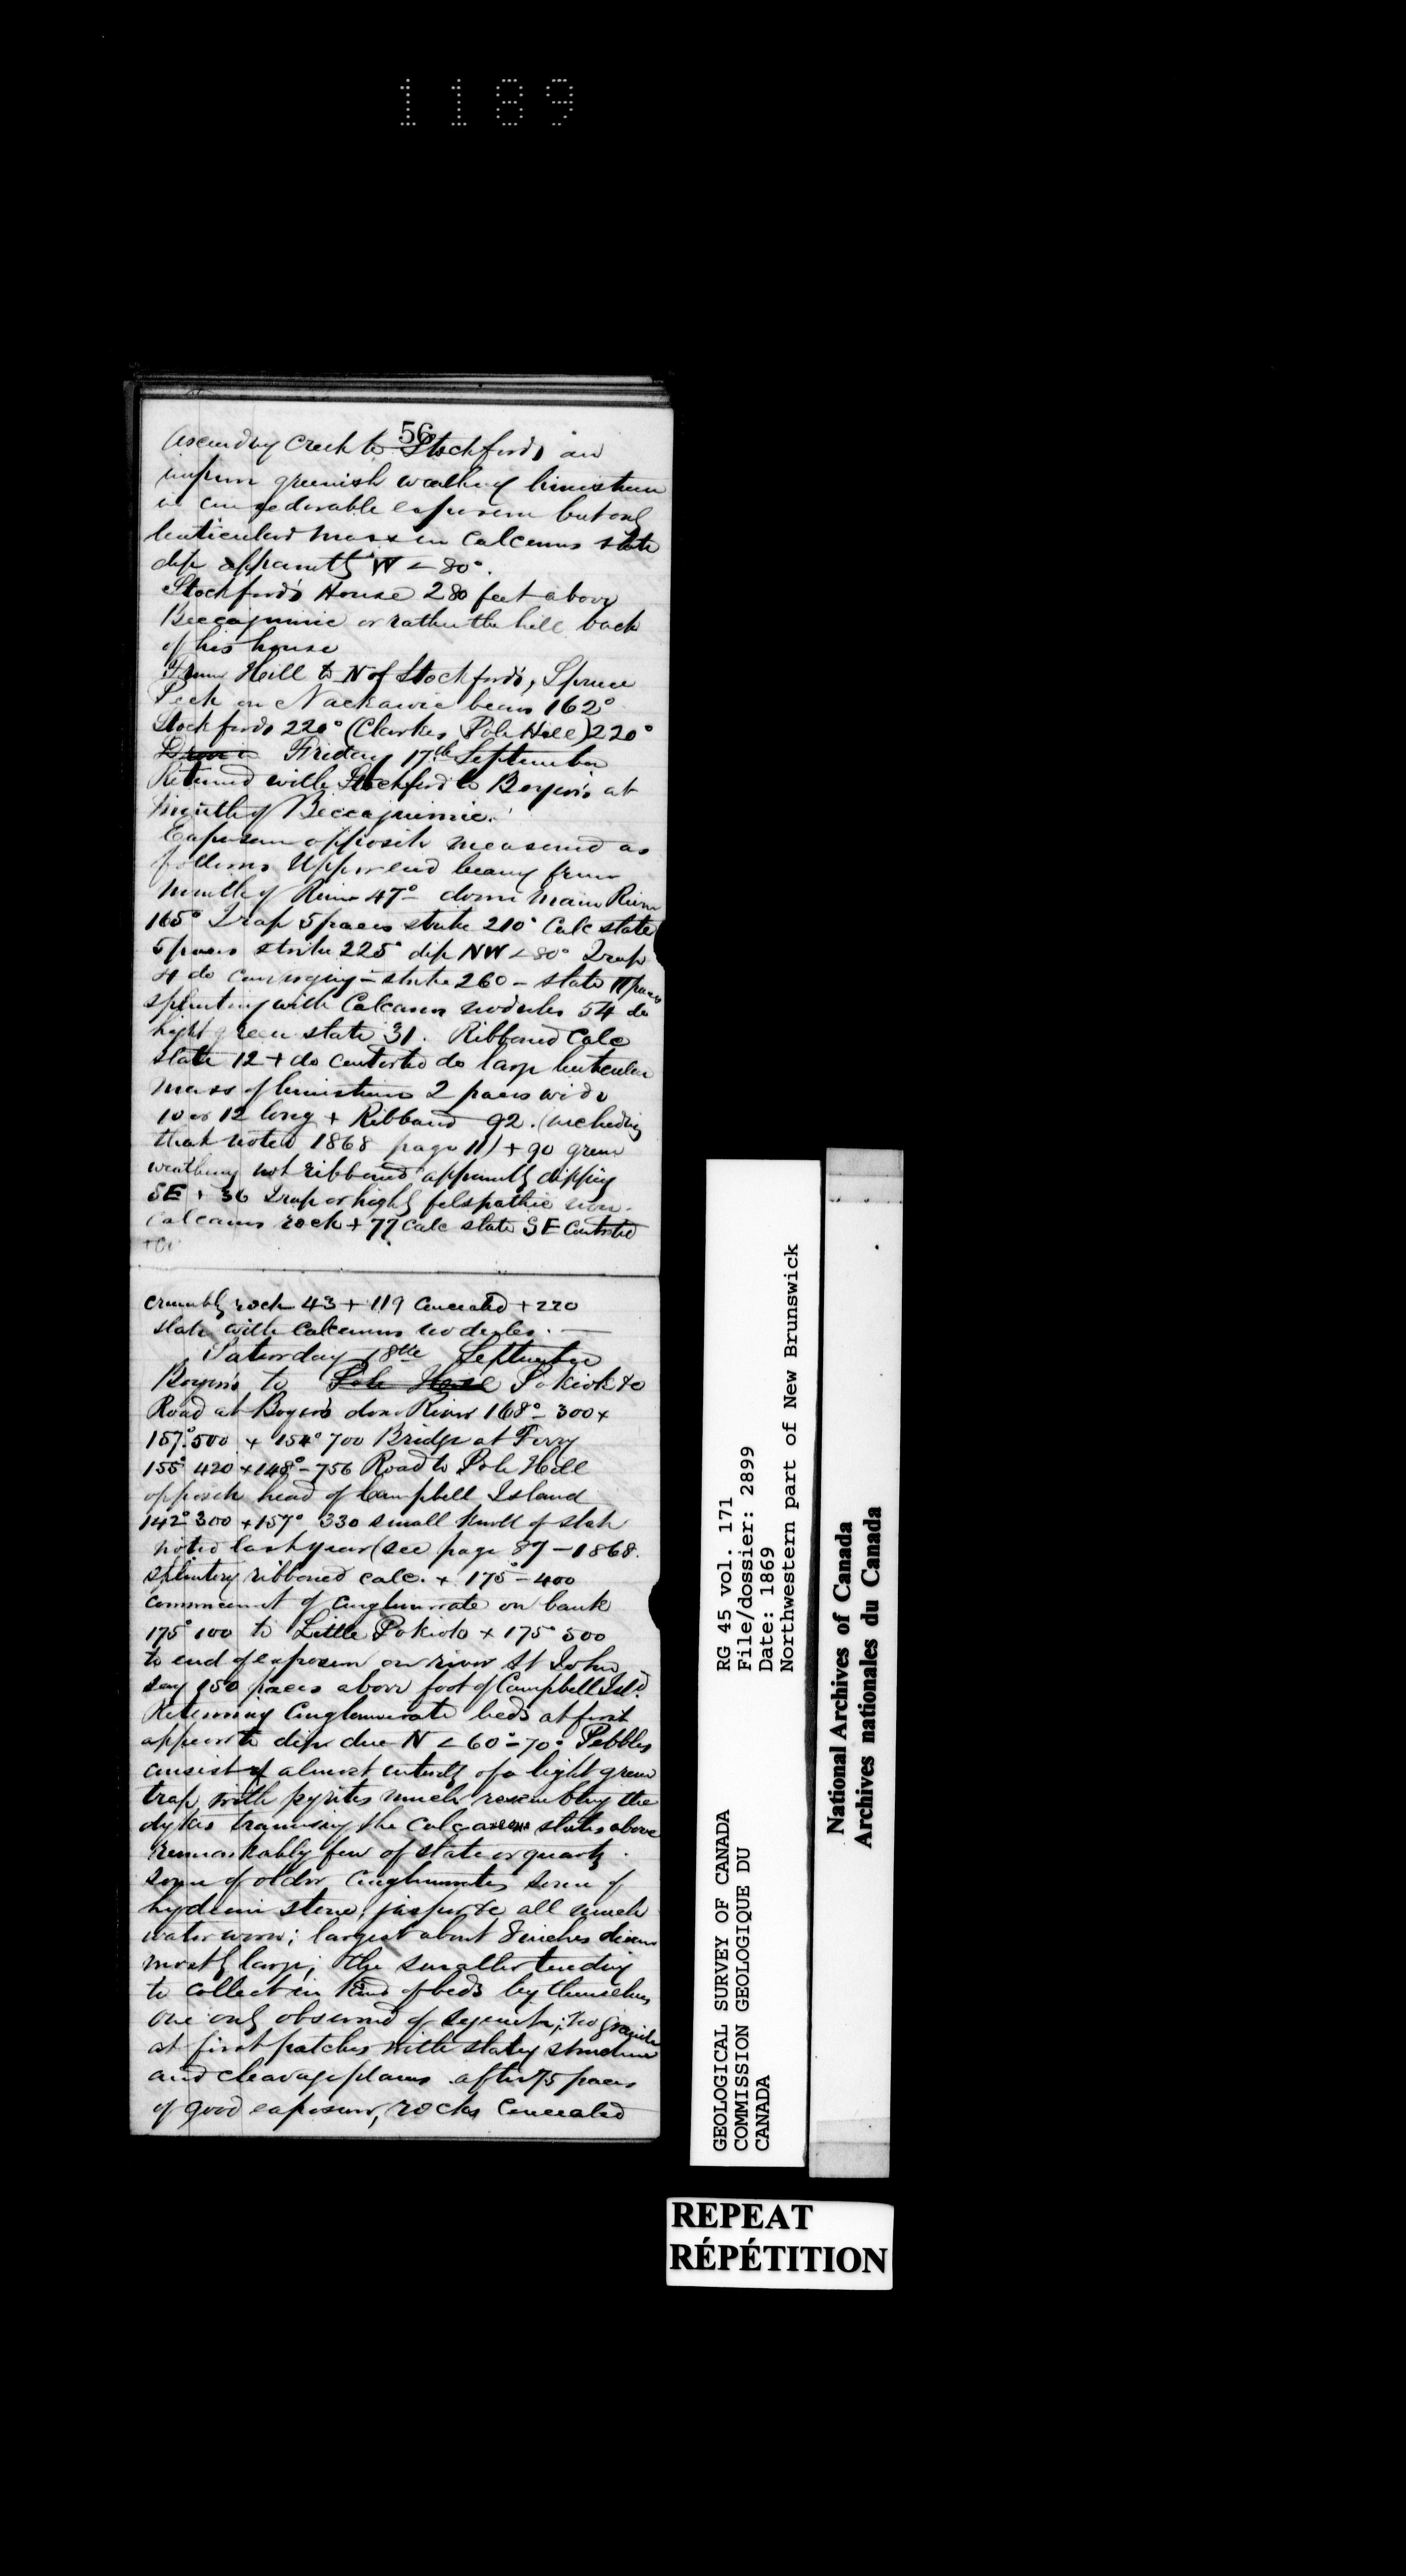 1189
56
Ascending Creek to Stockfords an
impure greenish weathering limestone
in considerable exposure but only
lenticular mass in Calcareous slate
dip apparently W < 80°.
Stockford's House 280 feet above
Beccaguimic or rather the hill back
of his house
From Hill to N of Stockford's, Spruce
Peak on Nackawic bears 162°
Stockfords 220° (Clarkes Pole Hill) 220°
Friday 17th September
Returned with Stockford to Boyer's at
mouth of Beccaguimic.
Exposure opposite measured as
follows Upper end bearing from
mouth of River 47° - down main River
165° Trap 5 paces strike 210° Calc slate
5 paces strike 225° dip NW < 80° Trap
4 do converging - strike 260 - slate 11 paces
splintery with Calcareous nodules 54 do
light green slate 31. Ribboned Calc
slate 12 + do contorted do large lenticular
mass of limestone 2 paces wide
10 or 12 long + Ribband 92. (including
that noted 1868 page 11) + 90 green
weathering not ribboned apparently dipping
SE + 36 Trap or highly felspathic non-
calcareous rock + 77 calc slate SE contorted
crumbly rock 43 + 119 Concealed + 220
slate with Calcareous nodules. —
Saturday 18th September
Boyer's to Pole Hill Pokiok &c
Road at Boyer's down River 168° - 300 +
157° 500 + 154° 700 Bridge at Ferry
155° 420 + 148° - 756 Road to Pole Hill
opposite head of Campbell Island
142° 300 + 157° 330 small knoll of slate
noted last year (see page 87 - 1868.
splintery ribboned calc. + 175° - 400
commencement of conglomerate on bank
175° 100 to Little Pokiok + 175° 500
to end of exposure on river St John
say 150 paces above foot of Campbell Isld.
Returning Conglomerate beds at first
appear to dip due N < 60° - 70° Pebbles
consist of almost entirely of a light green
trap with pyrites much resembling the
dykes traversing the Calcareous slates above
remarkably few of slate or quartz.
some of older conglomerates some of
hydrein stone, jasper &c all much
water worn; largest about 8 inches diam
mostly large; the smaller tending
to collect in kind of beds by themselves
one only observed of syenite; no granite
at first patches with slaty structure
and cleavage planes after 75 paces
of good exposure, rocks Concealed
GEOLOGICAL SURVEY OF CANADA
COMMISSION GEOLOGIQUE DU
CANADA
RG 45 vol. 171
File/dossier: 2899
Date: 1869
Northwestern part of New Brunswick
National Archives of Canada
Archives nationales du Canada
REPEAT
RÉPÉTITION